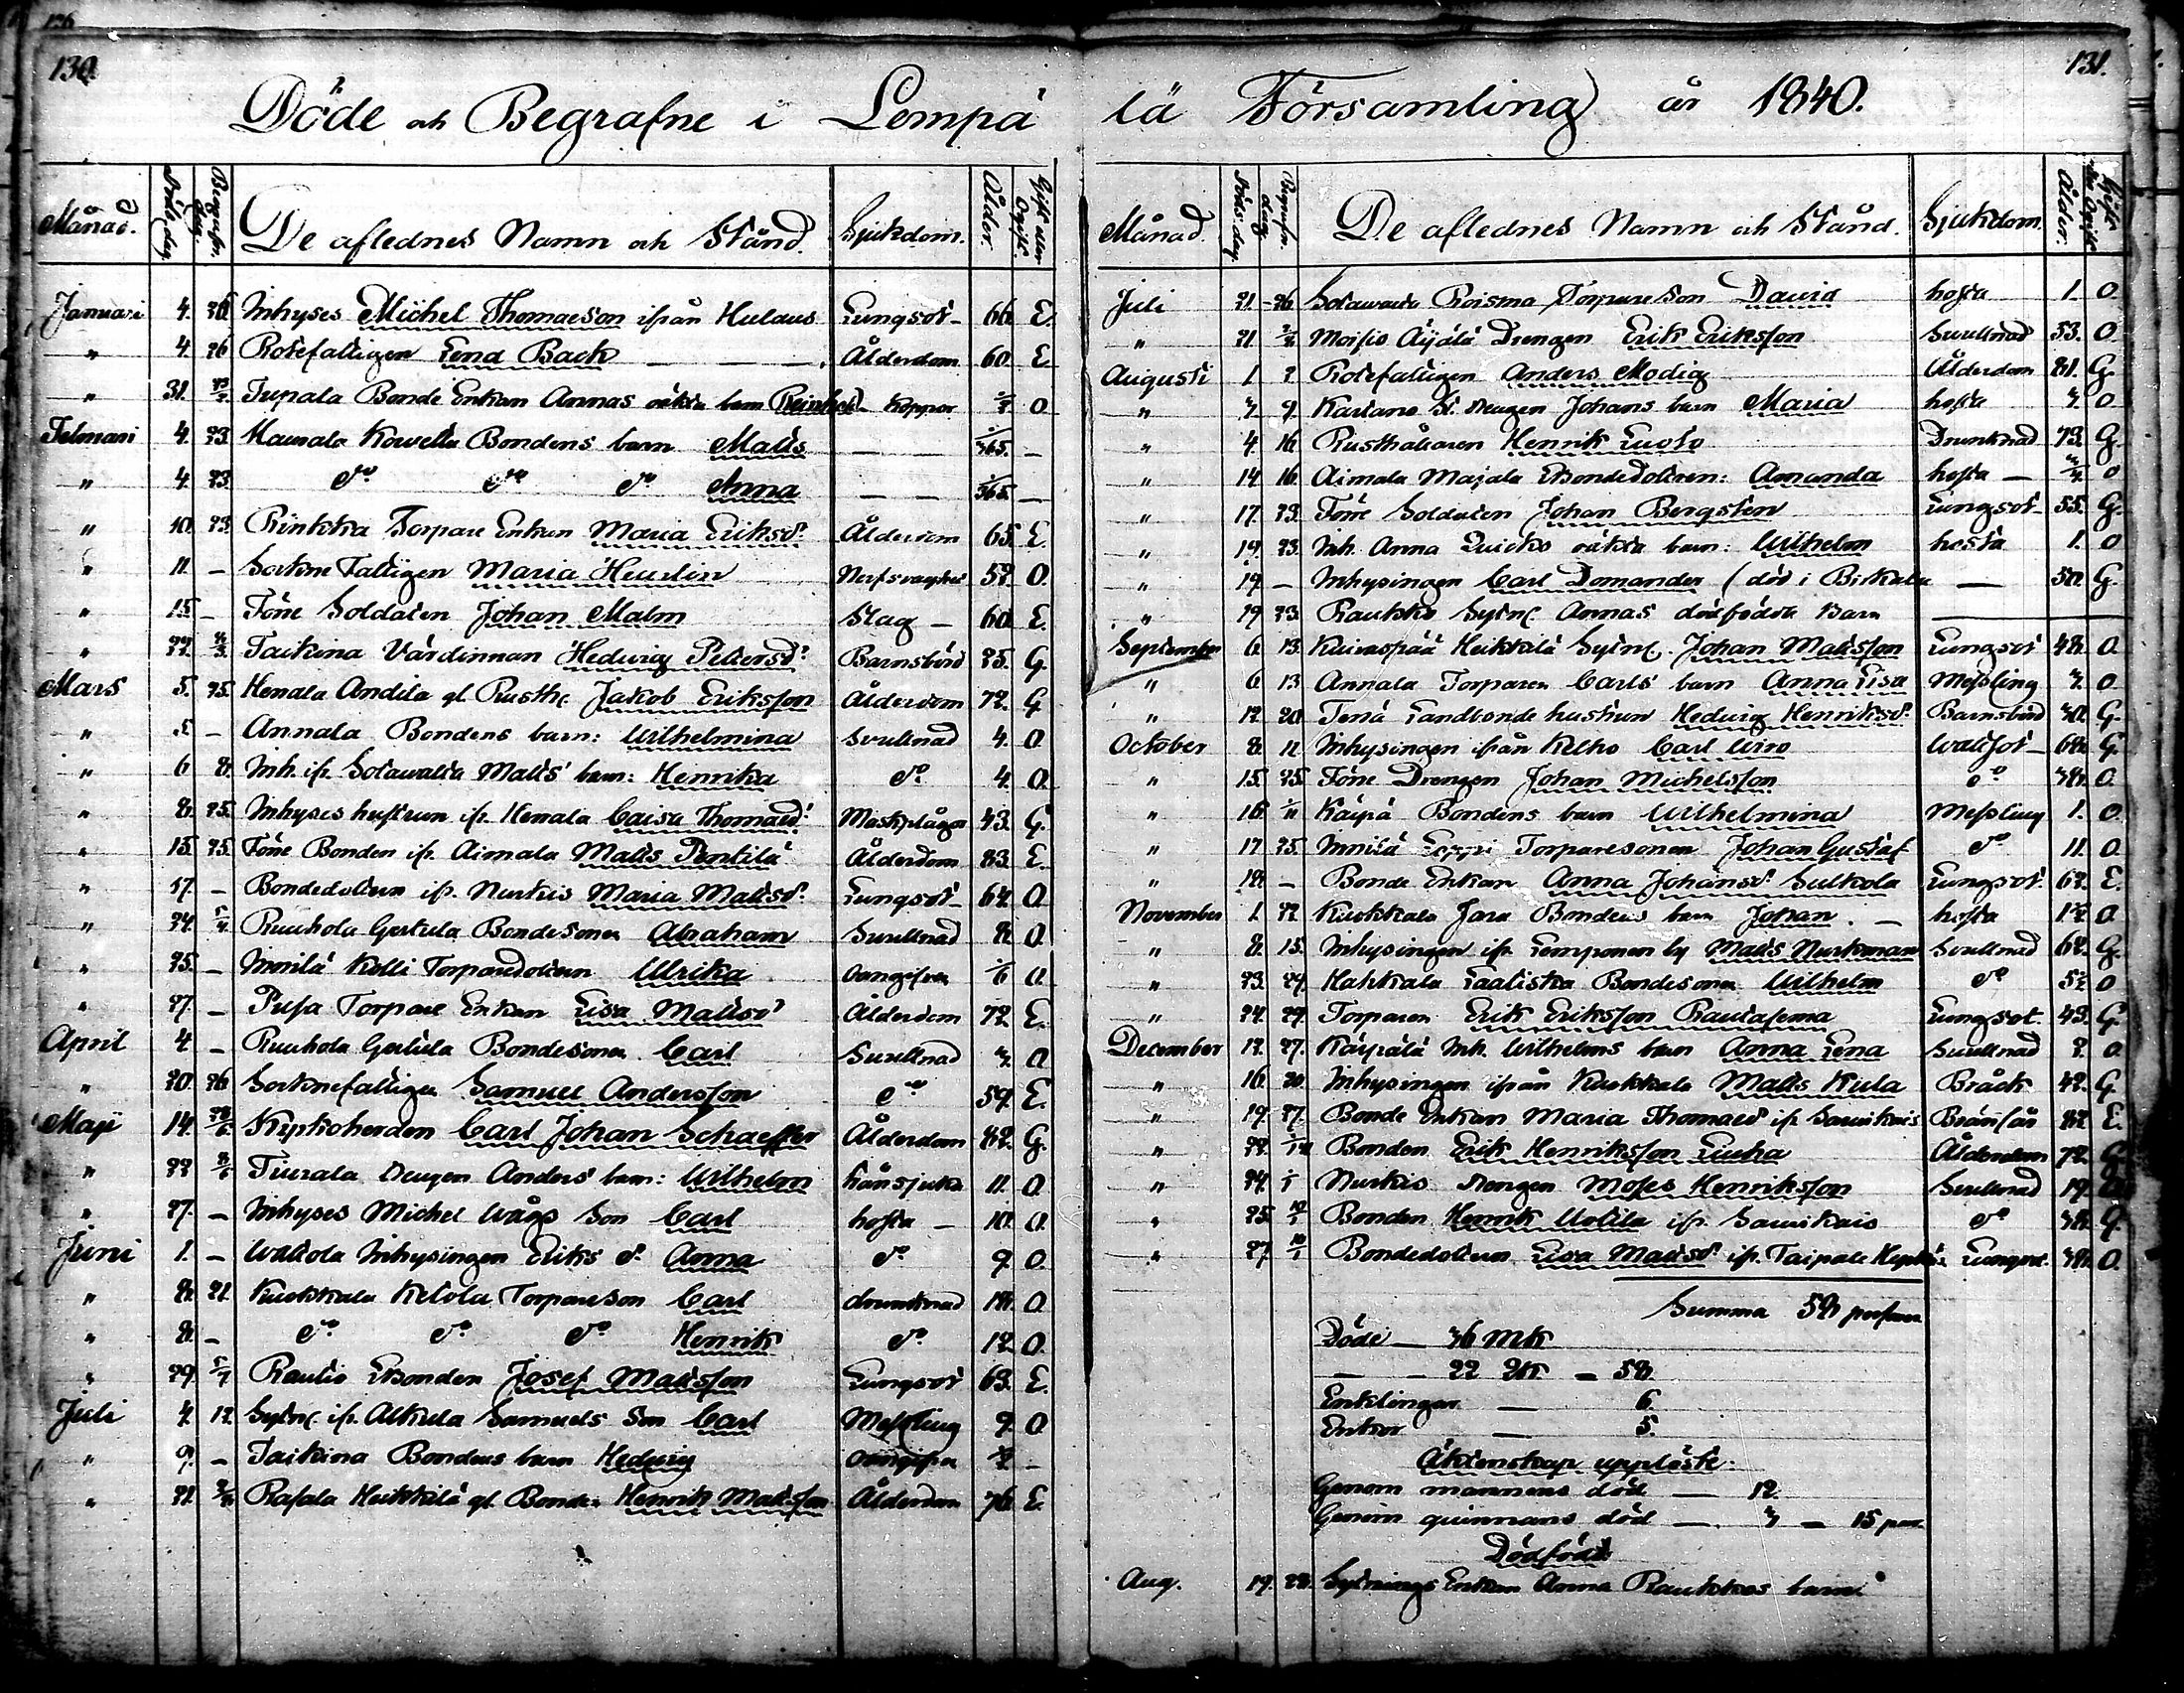 126
130.
131.
Döde och Begrafne i Lempä
lä Församling år 1840.
Månad. Döds dag. Begrafn. dag. De aflednes Namn och Stånd. Sjukdom. Ålder. Gift eller Ogift.
Januari 4. 26. Inhyses Michel Thomaeson ifrån Hulaus Lungsot 66 E.
" 4 26 Rotefattigen Lena Back Ålderdom 60. E.
" 31. Bonde Enkan Annas oäkta barn Koppor O
Februari 4. 23. Bondens barn Matts 1/365.
" 4. 23. do do do Anna 1/365.
" 10. 23. Rinkka Torpare Enkan Maria Eriksdr Ålderdom 65. E.
" 11. – Maria Heurlin 52. O.
" 15. – Före Soldaten Johan Malm Slag 60. E.
" 22. Taikina Värdinnan Hedwig Pettersdr Barnsbörd 25. G.
Mars 5. 25. Henala Andila gl. Rusth. Jakob Eriksson Ålderdom 72. G
" 5. – Annala Bondens barn: Wilhelmina Svullnad 4. O.
" 6 8. Inh. ifr. Sotawalta Matts' barn: Henrika do 4. O.
" 8. 25. Inhyses hustrun ifr. Henala Caisa Thomaedr Maskplågor 43. G.
" 15. 25. Före Bonden ifr. Aimala Matts Penttilä Ålderdom 83. E.
" 17. – Bondedottren ifr. Nurkis Maria Mattsdr Lungsot 62. O.
" 24. 5/4 Ruuhola Gertula Bondesonen Abraham Svullnad 8. O.
" 25. – Innilä Kelli Torparedottren Ulrika oangifven 1/6 O.
" 27. – Torpare Enkan Lisa Mattsdr Ålderdom 72. E.
April 4 – Ruuhola Gertula Bondesonen Carl Svullnad 3. O.
" 20. 26 Soknefattigen Samuel Andersson do 59. E.
Maji 14. Kyrkoherden Carl Johan Schaeffer Ålderdom 82. G.
" 22 Drengen Anders' barn: Wilhelm 11. O.
" 27. – Inhyses Michel Wågs Son Carl hosta – 10. O.
Juni 1. – Waltola Inhysingen Eriks dr Anna do 9. O.
" 8. 21. Kuokkala Ketola Torpareson Carl drunknad 18. O.
" 8. – do do do Henrik do 12. O.
" 29. 5/7 Rautio Bonden Josef Mattsson Lungsot 63. E.
Juli 4. 12. Sytn. ifr. Alkula Samuels Son Carl Messling 9. O
" 9. – Taikina Bondens barn Hedwig oangifven
" 21. Heikkilä gl. Bonden Henrik Mattsson Ålderdom 76. E.
Månad. Döds dag. Begrafn. dag. De aflednes Namn och Stånd. Sjukdom. Ålder. Gift eller Ogift
Juli 21. 26. Sotawalta Roisma Torpare Son David hosta 1. O.
" 21. Moisio Äijälä Drengen Erik Eriksson Svullnad 53. O.
Augusti 1 2 Rotefattigen Anders Modig Ålderdom 81. G.
" 3. 9. Drengen Johans barn Maria hosta 3. O
" 4. 16. Rusthållaren Henrik Drunknad 73. G.
" 14 16. Aimala Majala Bondedottren: Amanda hosta – 3/4 O
" 17. 23. Före Soldaten Johan Bergsten Lungsot 55. G.
" 19. 23. Inh. Anna oäkta barn: Wilhelm hosta 1. O
" 19. – Inhysingen Carl Domander (död i Birkala 50. G.
" 19 23. Raukko Sytn. Annas dödfödda Barn
September 6. 13. Kuivaspää Heikkilä Sytn. Johan Mattsson Lungsot 48. O.
" 6 13 Annala Torparen Carls barn Anna Lisa Messling 3. O.
" 12. 20. Landbonde hustrun Hedwig Henriksdr Barnsbörd 30. G.
October 8. 11. Inhysingen ifrån Kelho Carl Wiro Wattsot 68. G.
" 15. 25. Före Drengen Johan Michelsson do 38. O.
" 16. Käipä Bondens barn Wilhelmina Messling 1. O.
" 17 25. Innilä Torparesonen Johan Gustaf do 11. O.
" 18. – Bonde Enkan Anna Johansdr Sulkola Lungsot. 62. E.
November 1. 22. Kuokkala Jara Bondens barn Johan. – hosta O.
" 8. 15. Inhysingen ifr. Lemponen by Matts Nurkman Svullnad 62. G.
" 23. 29. Hakkala Laalistka Bondesonen Wilhelm do O
" 24. 29. Torparen Erik Eriksson Rautasema Lungsot. 43. G.
December 12. 27. Käipälä Inh. Wilhelms barn Anna Lena Svullnad 2. O.
" 16. 20. Inhysingen ifrån Kuokkala Matts Kula Bråck 42. G
" 19. 27. Bonde Enkan Maria Thomaedr ifr. Sauikais Brännsår 82. E.
" 22. Bonden Erik Henriksson Liuha Ålderdom 72. G
" 24. Nurkis drengen Moses Henriksson Svullnad 19.
" 25. 10/1 Bonden Henrik Uotila ifr. Sauikais do 38. G.
" 27. 10/1 Bondedottren Lisa Mattsdr ifr. Taipale Lungsot. 38. O.
Summa 58 personer
Döde – 36 Mk
– – 22 Qk – 58.
Enklingar – 6.
Enkor – 5.
Äktenskap upplöste:
Genom mannens död – 12.
Genom quinnans död – 3 – 15 par.
Dödföde
Aug. 19. 23. Sytnings Enkan Anna Raukkos barn